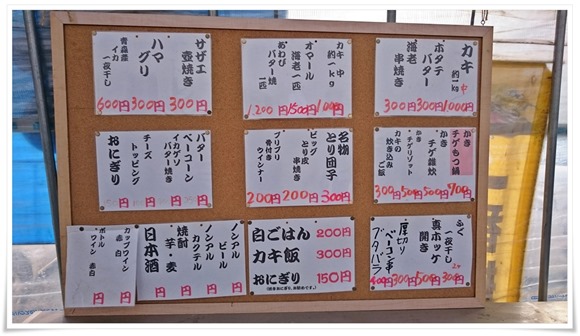 サザエ
壺焼き
ハマ
グリ
青森産
イカ
一夜干し
600円 300円 300円
カキ 中
約一kg
オマール
海老一匹
あわび
バター焼
一匹
1,200円 1500円 1000円
カキ 中
約1kg
ホタテ
バター
海老
串焼き
300円 300円 1000円
バター
ベーコン
イカゲソ
バター焼き
チーズ
トッピング
おにぎり
円 円 円 円
名物
とり団子
ビッグ
とり皮
串焼き
プリプリ
骨付き
ウインナー
200円 200円 300円
かき
チゲもつ鍋
かき
チゲ雑炊
かき
チゲリゾット
カキの
炊き込み
ご飯
300円 500円 500円 700円
カップワイン
赤 白
ボトル
ワイン 赤白
円 円
ノンアル
ビール
ノンアル
カクテル
焼酎
芋・麦
日本酒
円 円 円 円
白ごはん 200円
カキ飯 300円
おにぎり 150円
ふぐ
一夜干し
真ホッケ
開き
厚切り
ベーコン串
ブタバラ
300円 500円 300円